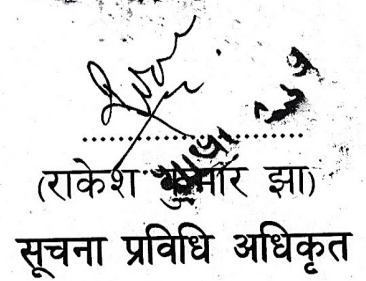 (राकेश कुमार झा)
सूचना प्रविधि अधिकृत